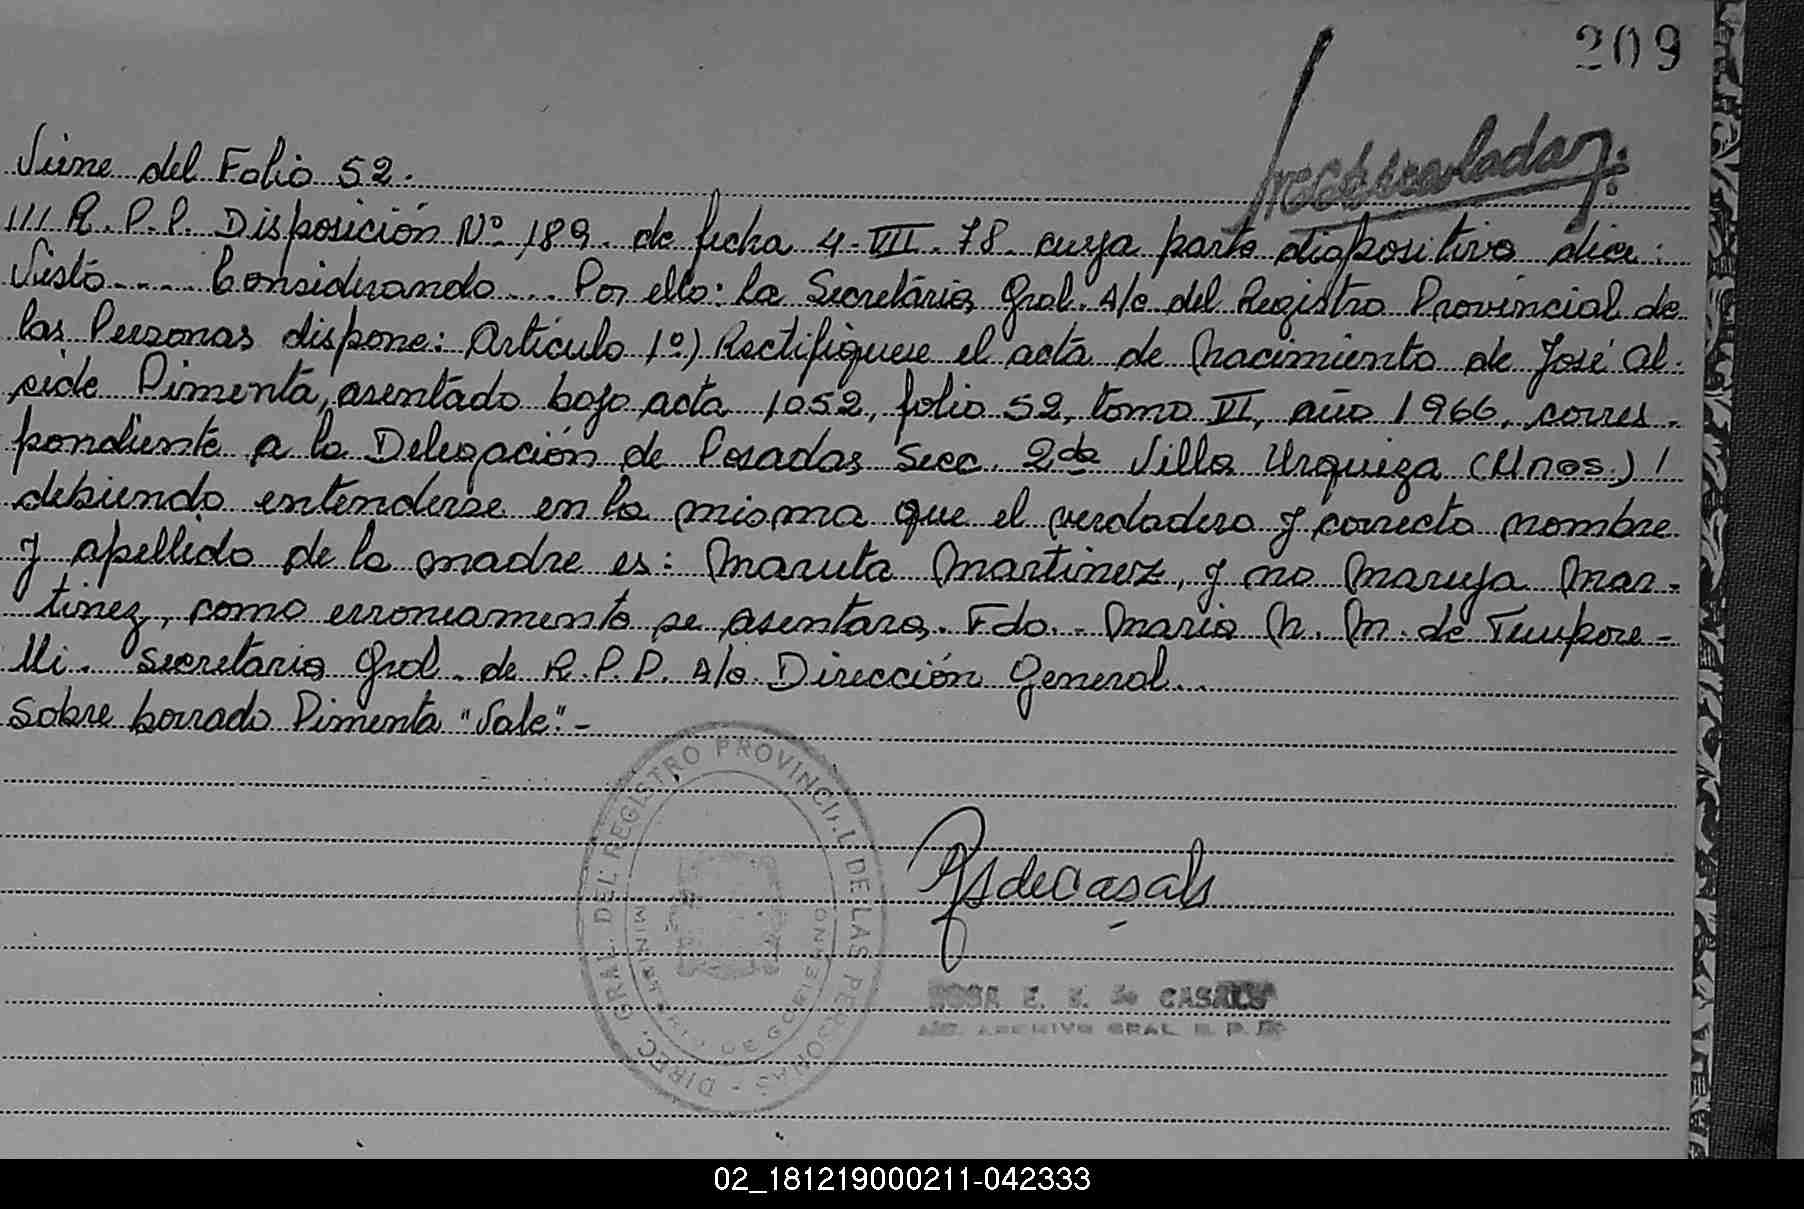 209
Viene del Folio 52.
/// R. P. P. Disposición Nº 189. de fecha 4-VII-78 cuya parte dispositiva dice:
Visto.... Considerando.... Por ello: la Secretária Gral. A/c del Registro Provincial de
las Personas dispone: Artículo 1º) Rectifiquese el acta de Nacimiento de José Al-
cide Pimenta, asentado bajo acta 1052, folio 52, tomo VI, año 1966, corres-
pondiente a la Delegación de Posadas Secc. 2da Villa Urquiza (Mnes.) /
debiendo entenderse en la misma que el verdadero y correcto nombre
y apellido de la madre es: Maruta Martinez, y no Maruja Mar-
tinez, como erroneamente se asentara. Fdo.- Maria N. M. de Tempore-
lli. Secretaria Gral. de R. P. P. A/c Dirección General..
Sobre borrado Pimenta "Vale".-
DIREC. GRAL. DEL REGISTRO PROVINCIAL DE LAS PERSONAS -
MINISTERIO DE GOBIERNO
ROSA E. de CASALS
ARCHIVO GRAL. R. P. P.
02_181219000211-042333